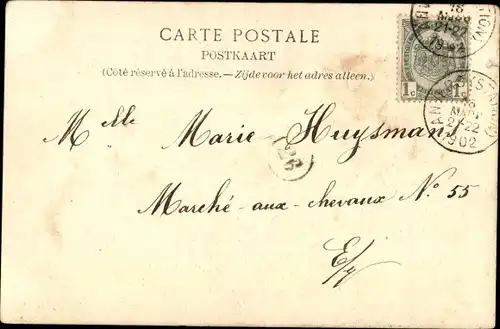 CARTE POSTALE
POSTKAART
(Côté réservé à l'adresse. — Zijde voor het adres alleen.)
1c 1c
18
MARS
21-22
1902
18
MAART
21-22
1902
Melle Marie Huysmans
26
Marché-aux-chevaux No 55
E/v